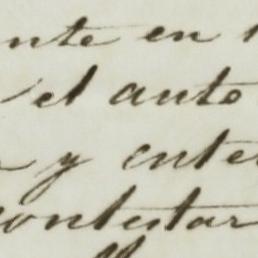 nte en
el auto
y ente
contestar